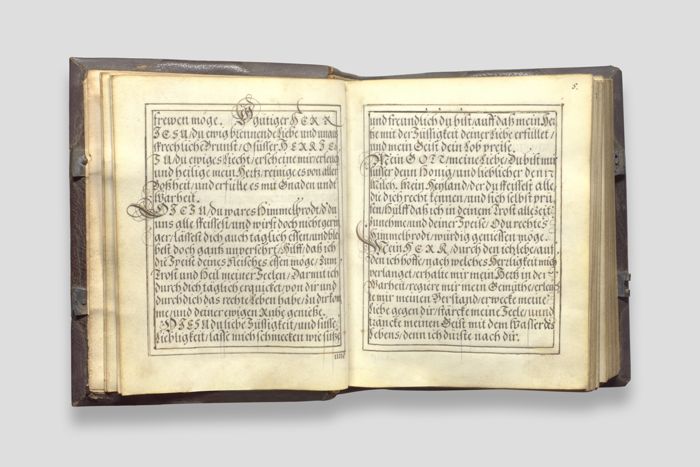 frewen möge. O gütiger HERR
JESU/du ewig brennende Liebe und unauß
sprechliche Brunst/O süsser HERR JE-
SU/du ewiges Liecht/erscheine mir/erleuch
und heilige mein Hertz/reinige es von aller
Boßheit/und erfülle es mit Gnaden undt
Warheit.
O JESU/du wares Himmelbrodt/d' du
uns alle speisest/und wirst doch nicht gerin
ger/lässest dich auch täglich essen/und blei
best doch gantz unversehrt/Hilff/daß ich
die Speise deines Fleisches essen möge/zum
Trost und Heil meiner Seelen/Darmit ich
durch dich täglich erquicket/von dir und
durch dich das rechte Leben habe/zu dir kom
me/und deiner ewigen Ruhe geniesse.
O JESU du liebe Süssigkeit/und süsse
Liebligkeit/lasse mich schmecken wie süsse
und
5.
und freundlich du bist/auff daß mein Her
tze mit der Süssigkeit deiner Liebe erfüllet/
und mein Geist dein Lob preise.
Mein GOTT/meine Liebe/Du bist mir
süsser denn Honig/und lieblicher den n
Milch. Mein Heyland/der du speisest alle
die dich recht kennen/und sich selbst prü
fen/Hilff daß ich in deinem Trost allezeit
zunehme/und deiner Speise/O du rechtes
Himmelbrodt/würdig geniessen möge.
Mein HERR/durch den ich lebe/auff
den ich hoffe/nach welches Herzligkeit mich
verlanget/erhalte mir mein Hertz in der
Warheit/regiere mir mein Gemüthe/erleuch
te mir meinen Verstand/erwecke meine
Liebe gegen dir/stärcke meine Seele/und
träncke meinen Geist mit dem Wasser des
Lebens/denn ich dürste nach dir.